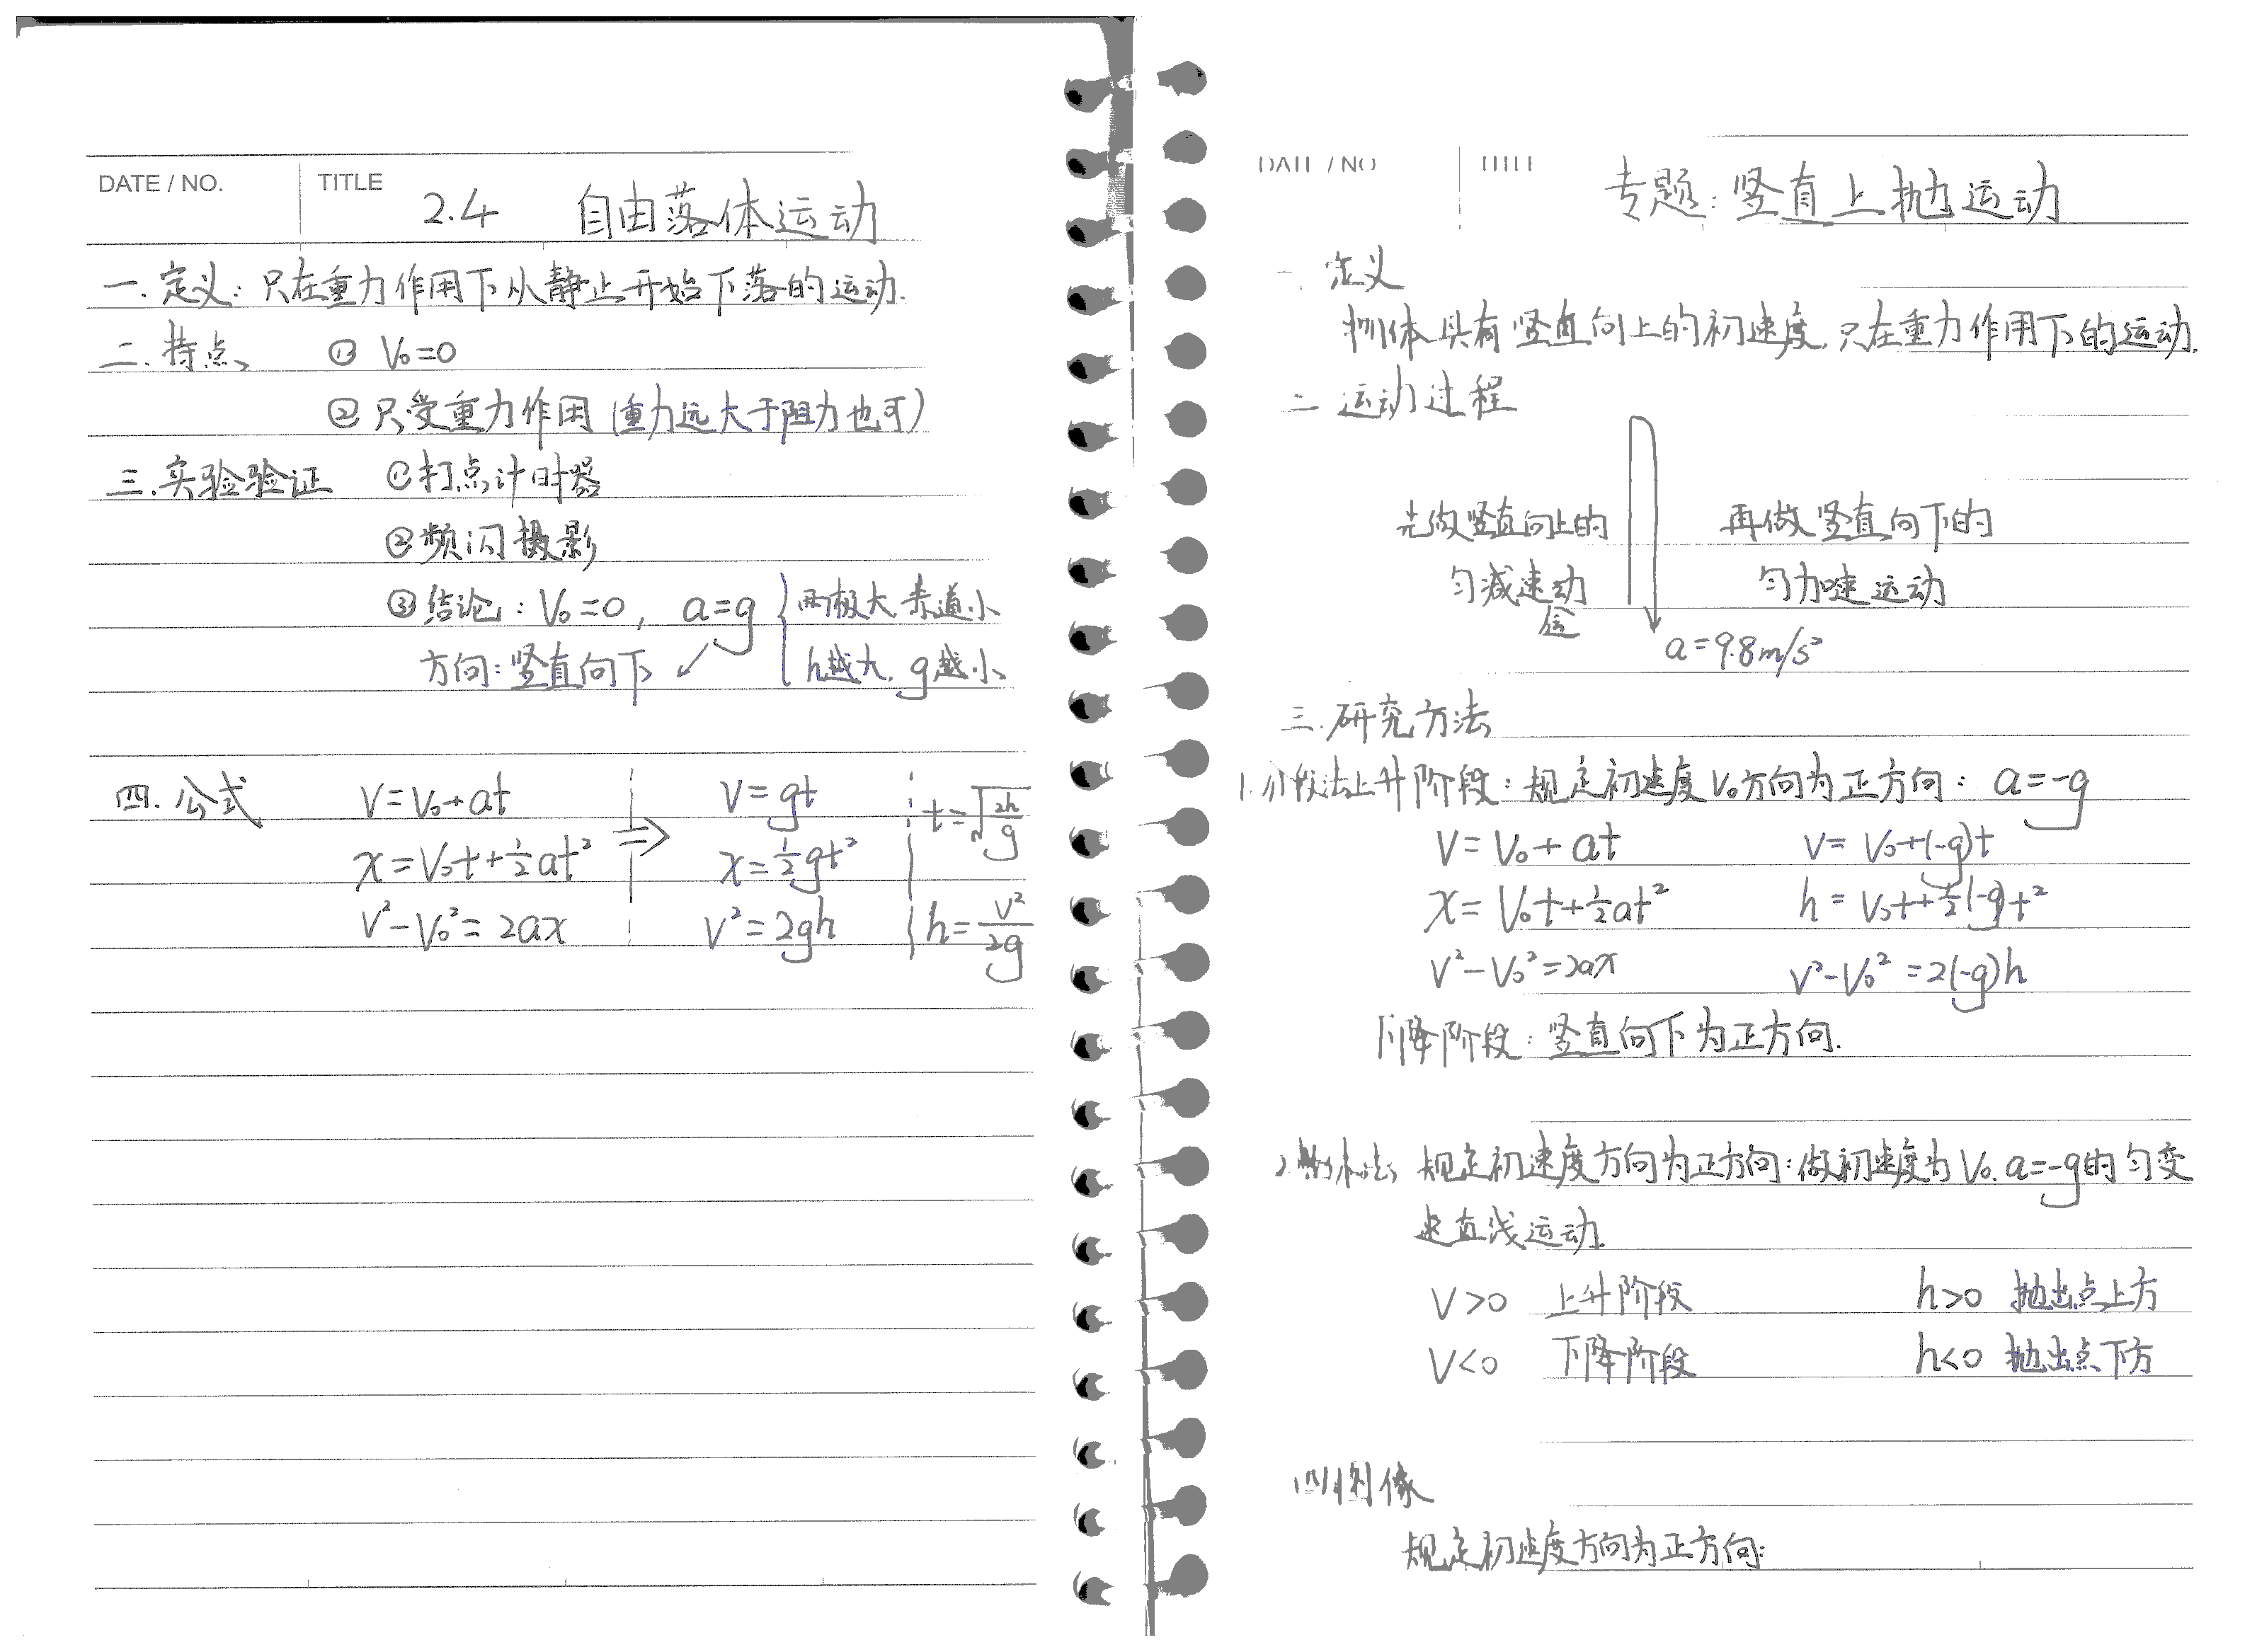 DATE / NO.
TITLE
2.4 自由落体运动
一.定义:只在重力作用下从静止开始下落的运动.
二.特点 ① V₀=0
②只受重力作用(重力远大于阻力也可)
三.实验验证 ①打点计时器
②频闪摄影
③结论:V₀=0, a=g { 两极大 赤道小
方向:竖直向下 ↙ h越大, g越小
四.公式 V=V₀+at ⇒ V=gt t=√(2h/g)
x=V₀t+½at² x=½gt² 
V²-V₀²=2ax V²=2gh h=V²/2g
DATE / NO
TITLE
专题:竖直上抛运动
一.定义
物体具有竖直向上的初速度,只在重力作用下的运动.
二 运动过程
先做竖直向上的 再做竖直向下的
匀减速运动 匀加速运动
a=9.8m/s²
三.研究方法
1.分段法上升阶段:规定初速度V₀方向为正方向: a=-g
V=V₀+at V=V₀+(-g)t
x=V₀t+½at² h=V₀t+½(-g)t²
V²-V₀²=2ax V²-V₀²=2(-g)h
下降阶段:竖直向下为正方向.
2 规定初速度方向为正方向:做初速度为V₀.a=-g的匀变
速直线运动
V>0 上升阶段 h>0 抛出点上方
V<0 下降阶段 h<0 抛出点下方
四图像
规定初速度方向为正方向: